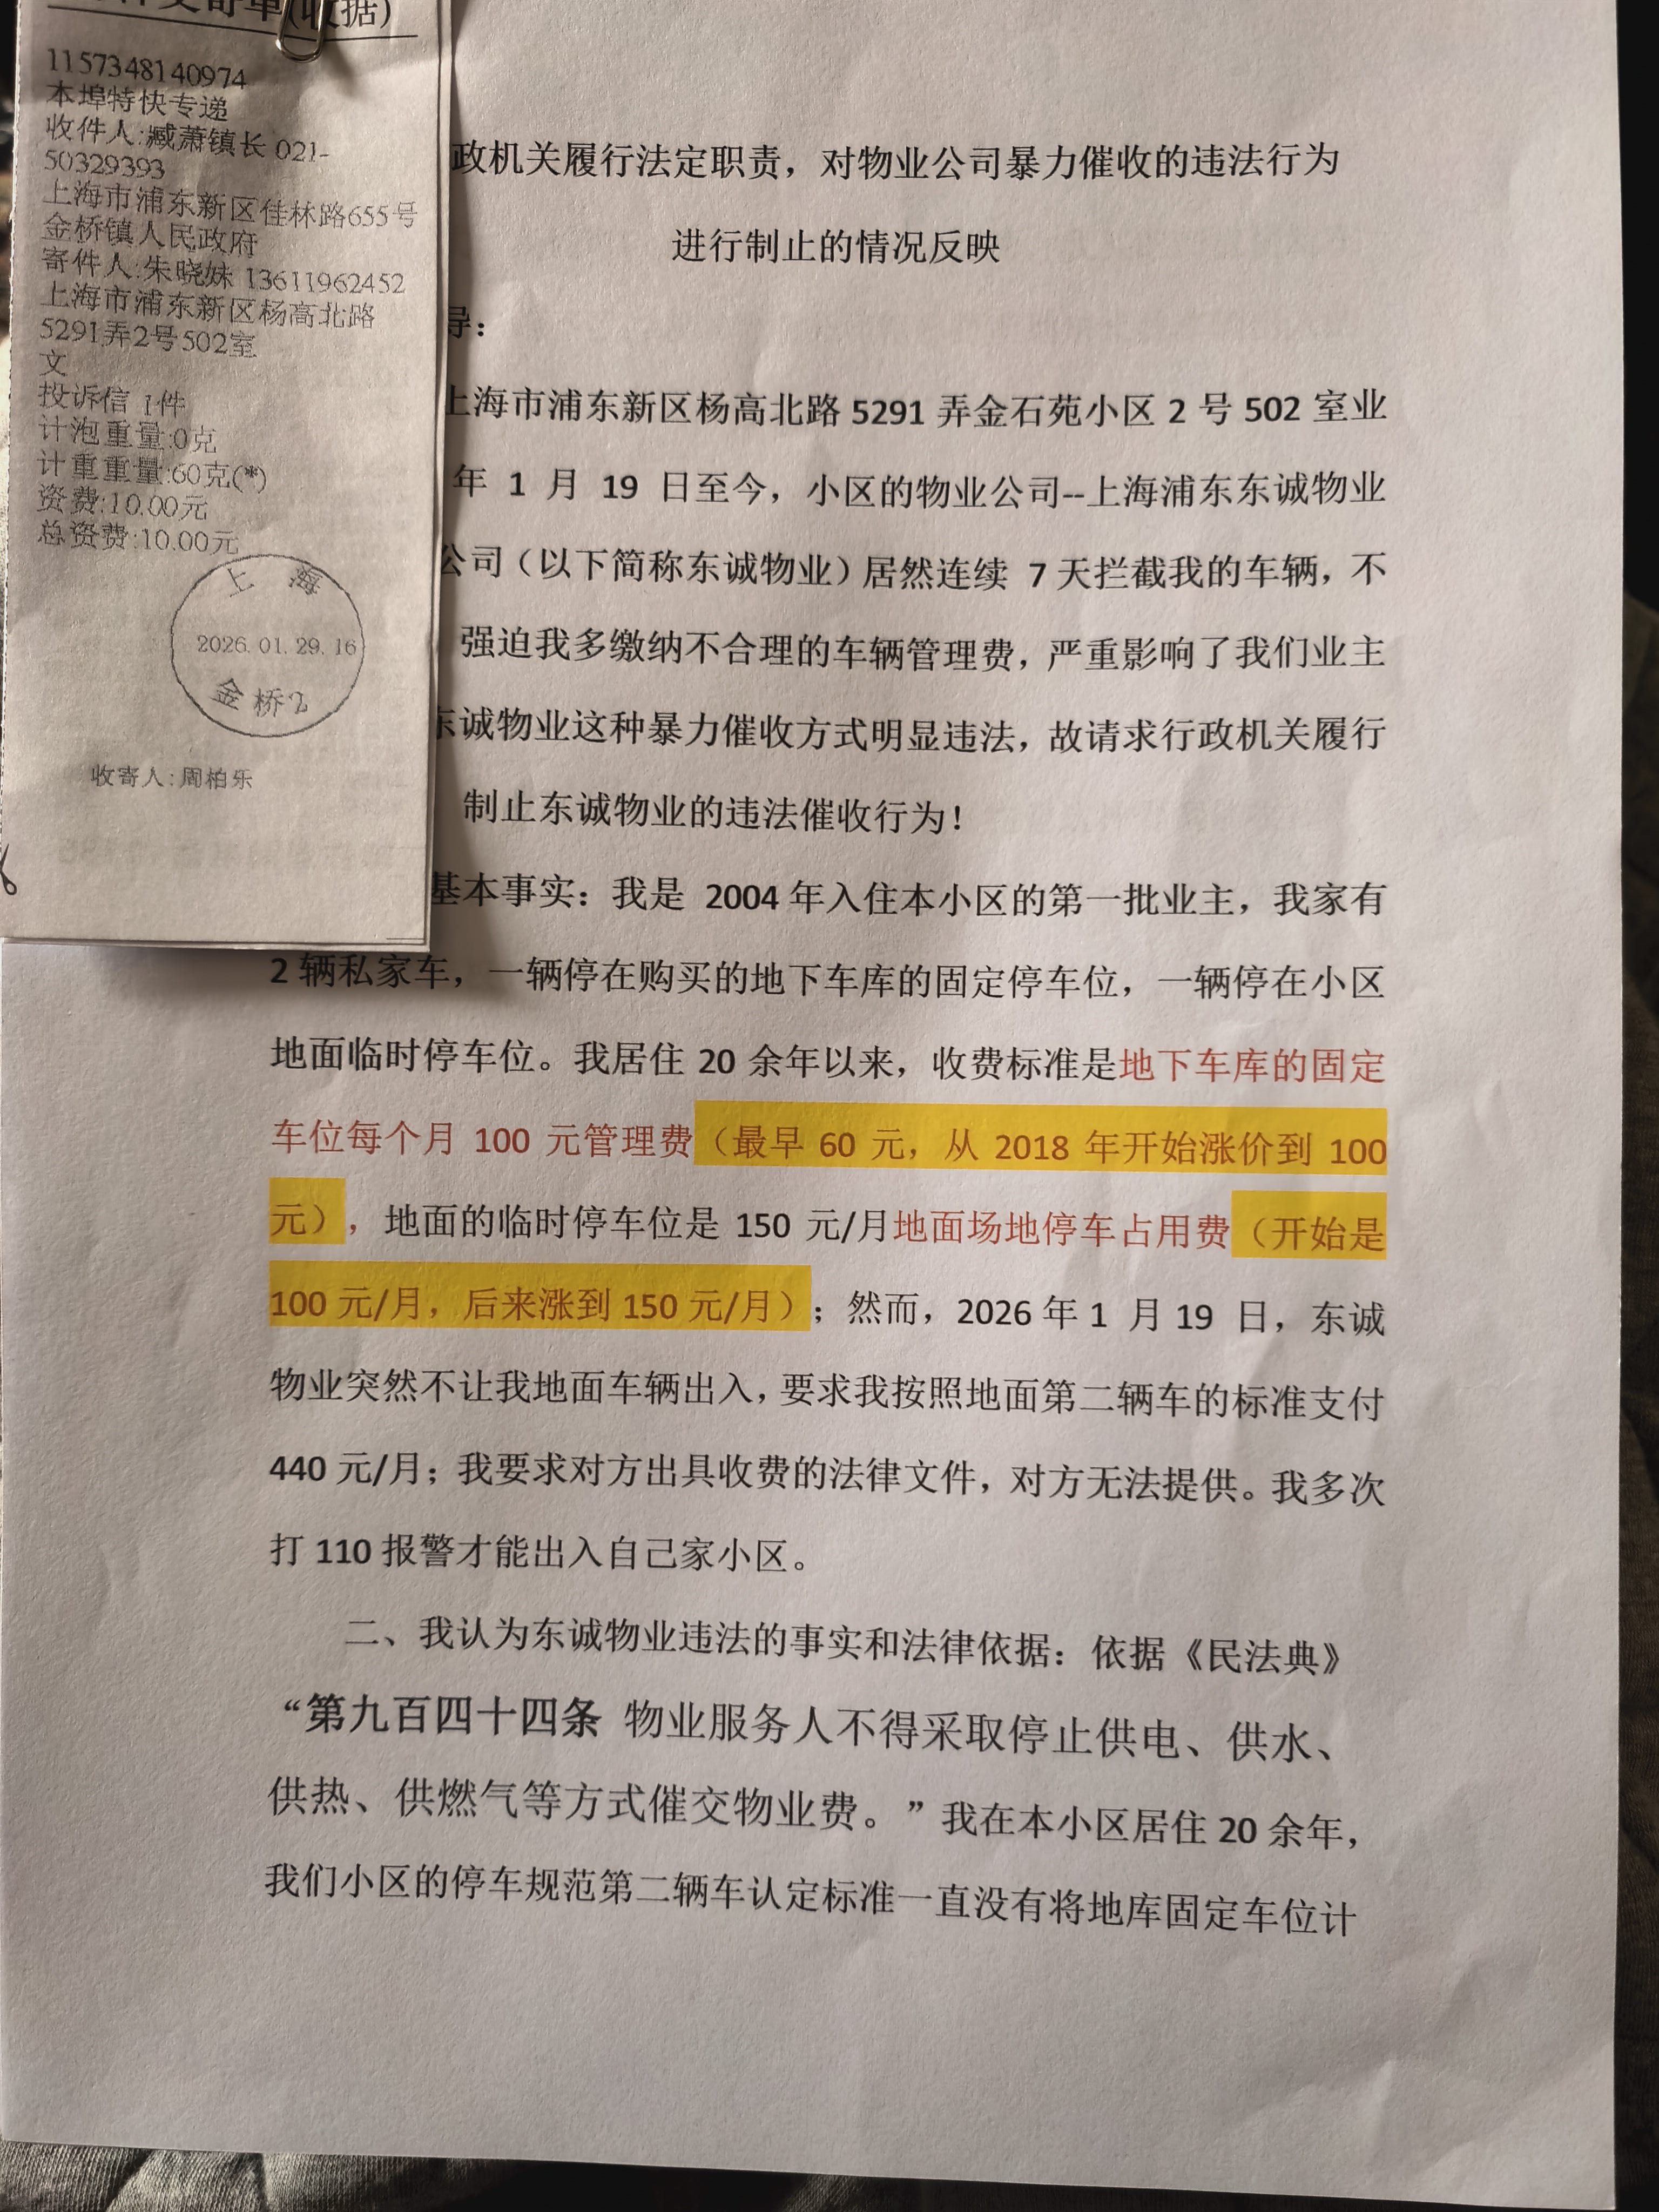 (收据)
1157348140974
本埠特快专递
收件人:臧萧镇长 021-
50329393
上海市浦东新区佳林路655号
金桥镇人民政府
寄件人:朱晓妹 13611962452
上海市浦东新区杨高北路
5291弄2号502室
文
投诉信 1件
计泡重量:0克
计重重量:60克(*)
资费:10.00元
总资费:10.00元
上海
2026.01.29.16
金桥2
收寄人:周柏乐
政机关履行法定职责，对物业公司暴力催收的违法行为
进行制止的情况反映
导：
上海市浦东新区杨高北路 5291 弄金石苑小区 2 号 502 室业
年 1 月 19 日至今，小区的物业公司--上海浦东东诚物业
公司（以下简称东诚物业）居然连续 7 天拦截我的车辆，不
强迫我多缴纳不合理的车辆管理费，严重影响了我们业主
东诚物业这种暴力催收方式明显违法，故请求行政机关履行
制止东诚物业的违法催收行为！
基本事实：我是 2004 年入住本小区的第一批业主，我家有
2 辆私家车，一辆停在购买的地下车库的固定停车位，一辆停在小区
地面临时停车位。我居住 20 余年以来，收费标准是地下车库的固定
车位每个月 100 元管理费（最早 60 元，从 2018 年开始涨价到 100
元），地面的临时停车位是 150 元/月地面场地停车占用费（开始是
100 元/月，后来涨到 150 元/月）；然而，2026 年 1 月 19 日，东诚
物业突然不让我地面车辆出入，要求我按照地面第二辆车的标准支付
440 元/月；我要求对方出具收费的法律文件，对方无法提供。我多次
打 110 报警才能出入自己家小区。
二、我认为东诚物业违法的事实和法律依据：依据《民法典》
“第九百四十四条 物业服务人不得采取停止供电、供水、
供热、供燃气等方式催交物业费。”我在本小区居住 20 余年，
我们小区的停车规范第二辆车认定标准一直没有将地库固定车位计